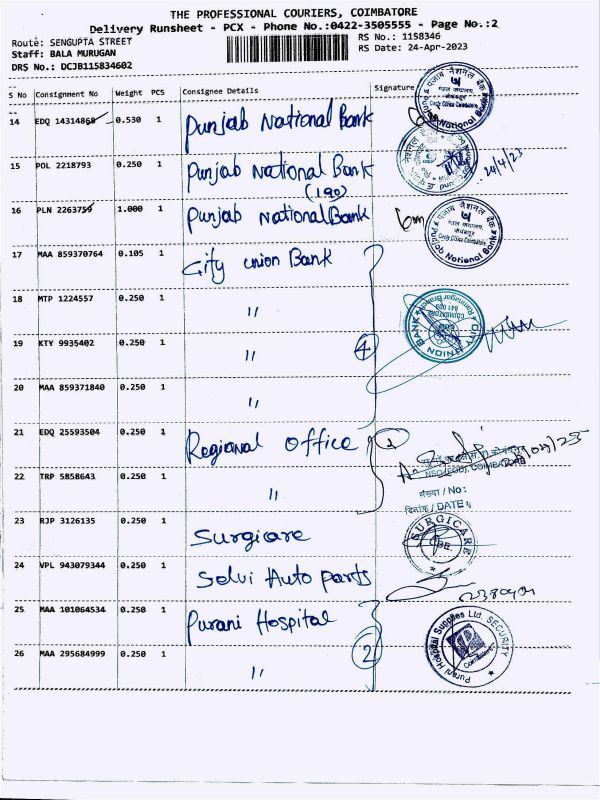 THE PROFESSIONAL COURIERS, COIMBATORE
Delivery Runsheet - PCX - Phone No.:0422-3505555 - Page No.:2
Route: SENGUPTA STREET
RS No.: 1158346
Staff: BALA MURUGAN
RS Date: 24-Apr-2023
DRS No.: DCJB115834602
S No Consignment No Weight PCS Consignee Details Signature
14 EDQ 14314868 0.530 1 Punjab National Bank
15 POL 2218793 0.250 1 Punjab National Bank
(190)
24/4/23
16 PLN 2263759 1.000 1 Punjab National Bank
17 MAA 859370764 0.105 1 City union Bank
18 MTP 1224557 0.250 1 "
19 KTY 9935402 0.250 1 " 4
20 MAA 859371840 0.250 1 "
21 EDQ 25593504 0.250 1 Regional Office
22 TRP 5858643 0.250 1 "
संख्या / No:
दिनांक / DATE
23 RJP 3126135 0.250 1 Surgicare
SURGICARE
CBE.
24 VPL 943079344 0.250 1 Selvi Auto parts
25 MAA 101064534 0.250 1 Purani Hospital
Purani Hospital Supplies Ltd. SECURITY
26 MAA 295684999 0.250 1 " 2